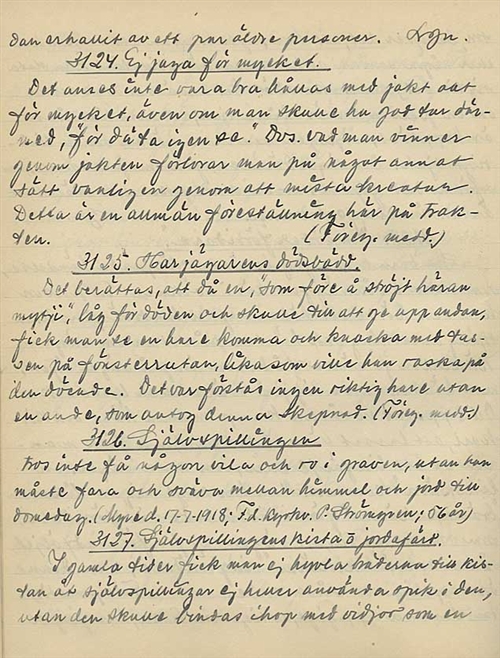 dan erhållit av ett par äldre personer. Dgn.
3124. Ej jaga för mycket.
Det anses inte vara bra hållas med jakt allt
för mycket, även om man skulle ha god tur där-
med, "för dä ta igen se". Dvs. vad man vinner
genom jakten förlorar man på något annat
sätt vanligen genom att mista kreatur.
Detta är en allmän föreställning här på trak-
ten. (Föreg. medd.)
3125. Harjägarens dödsbädd.
Det berättas, att då en, "som före å ströjt häran
mytji", låg för döden och skulle till att ge upp andan,
fick man se en hare komma och knacka med tas-
sen på fönsterrutan, lika som ville han raska på
den döende. Det var förstås ingen riktig hare utan
en ande, som antog denna skepnad. (Föreg. medd.)
3126. Självspillingen
tros inte få någon vila och ro i graven, utan han
måste fara och sväva mellan himmel och jord till
domedag. (17-7-1918; F.d. kyrkv. P. Strömgren; 56 år)
3127. Självspillingens kista o jordafärd.
I gamla tider fick man ej hyvla bräderna till kis-
tan åt självspillingar ej heller använda spik i den,
utan den skulle bindas ihop med vidjor som en